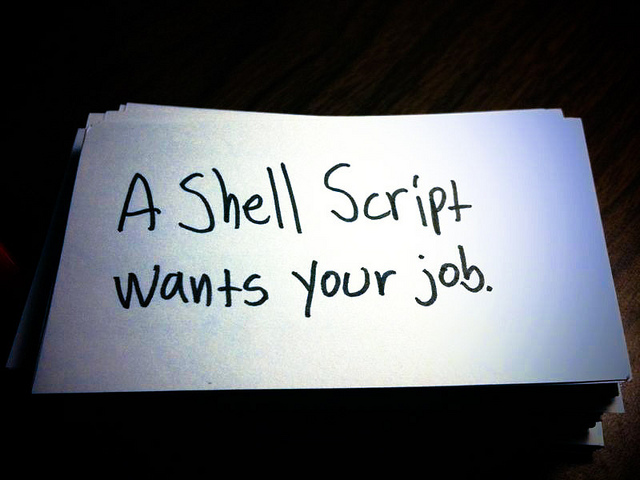 A Shell Script
wants your job.